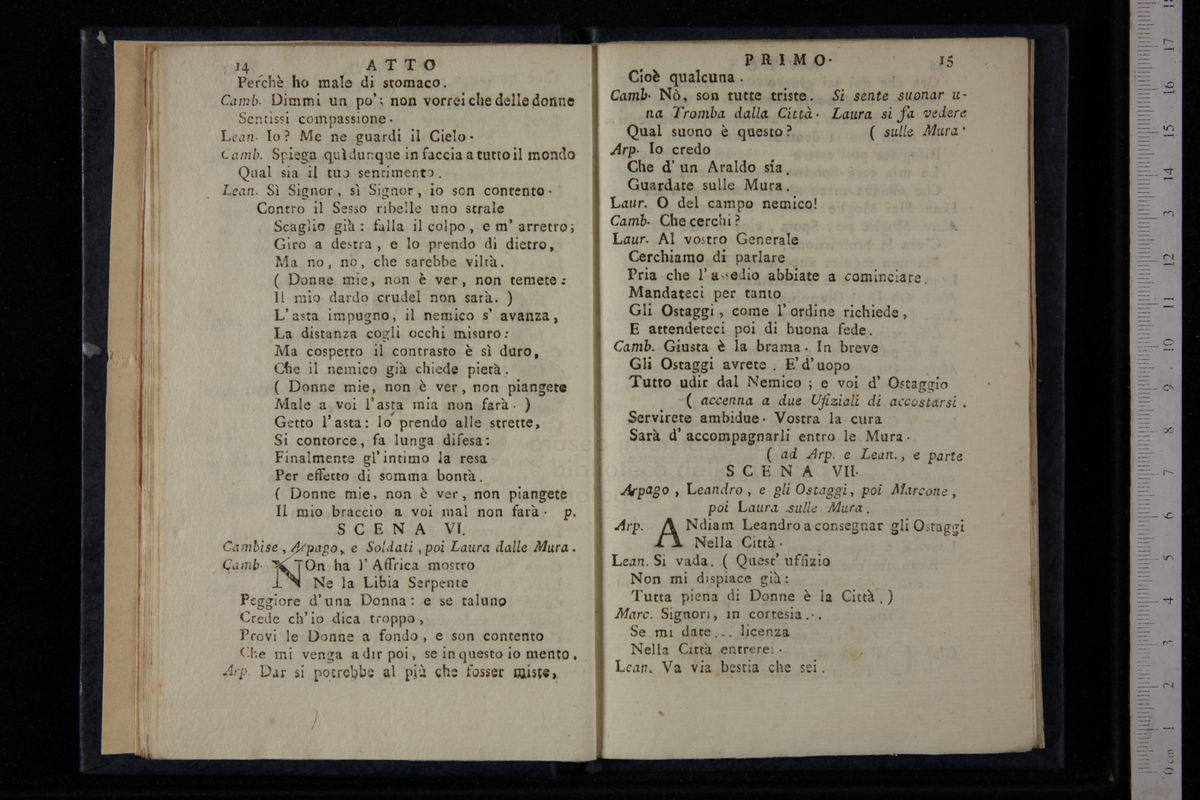 14 ATTO
Perchè ho male di stomaco.
Camb. Dimmi un po'; non vorrei che delle donne
Sentissi compassione.
Lean. Io? Me ne guardi il Cielo.
Camb. Spiega quì dunque in faccia a tutto il mondo
Qual sia il tuo sentimento.
Lean. Sì Signor, sì Signor, io son contento.
Contro il Sesso ribelle uno strale
Scaglio già: falla il colpo, e m' arretro;
Giro a destra, e lo prendo di dietro,
Ma no, no, che sarebbe viltà.
( Donne mie, non è ver, non temete:
Il mio dardo crudel non sarà. )
L' asta impugno, il nemico s' avanza,
La distanza cogli occhi misuro:
Ma cospetto il contrasto è sì duro,
Che il nemico già chiede pietà.
( Donne mie, non è ver, non piangete
Male a voi l'asta mia non farà. )
Getto l'asta: lo prendo alle strette,
Si contorce, fa lunga difesa:
Finalmente gl' intimo la resa
Per effetto di somma bontà.
( Donne mie, non è ver, non piangete
Il mio braccio a voi mal non farà. p.
SCENA VI.
Cambise, Arpago, e Soldati, poi Laura dalle Mura.
Camb. NOn ha l' Affrica mostro
Ne la Libia Serpente
Peggiore d'una Donna: e se taluno
Crede ch'io dica troppo,
Provi le Donne a fondo, e son contento
Che mi venga a dir poi, se in questo io mento.
Arp. Dar si potrebbe al più che fosser miste,
PRIMO. 15
Cioè qualcuna.
Camb. Nò, son tutte triste. Si sente suonar u-
na Tromba dalla Città. Laura si fa vedere
Qual suono è questo? ( sulle Mura.
Arp. Io credo
Che d' un Araldo sia.
Guardate sulle Mura.
Laur. O del campo nemico!
Camb. Che cerchi?
Laur. Al vostro Generale
Cerchiamo di parlare
Pria che l'assedio abbiate a cominciare.
Mandateci per tanto
Gli Ostaggi, come l'ordine richiede,
E attendeteci poi di buona fede.
Camb. Giusta è la brama. In breve
Gli Ostaggi avrete. E' d'uopo
Tutto udir dal Nemico; e voi d' Ostaggio
( accenna a due Ufiziali di accostarsi.
Servirete ambidue. Vostra la cura
Sarà d' accompagnarli entro le Mura.
( ad Arp. e Lean., e parte
SCENA VII.
Arpago, Leandro, e gli Ostaggi, poi Marcone,
poi Laura sulle Mura.
Arp. ANdiam Leandro a consegnar gli Ostaggi
Nella Città.
Lean. Si vada. ( Quest' uffizio
Non mi dispiace già:
Tutta piena di Donne è la Città. )
Marc. Signori, in cortesia...
Se mi date... licenza
Nella Città entrerei.
Lean. Va via bestia che sei.
0 cm 1 2 3 4 5 6 7 8 9 10 11 12 13 14 15 16 17 18